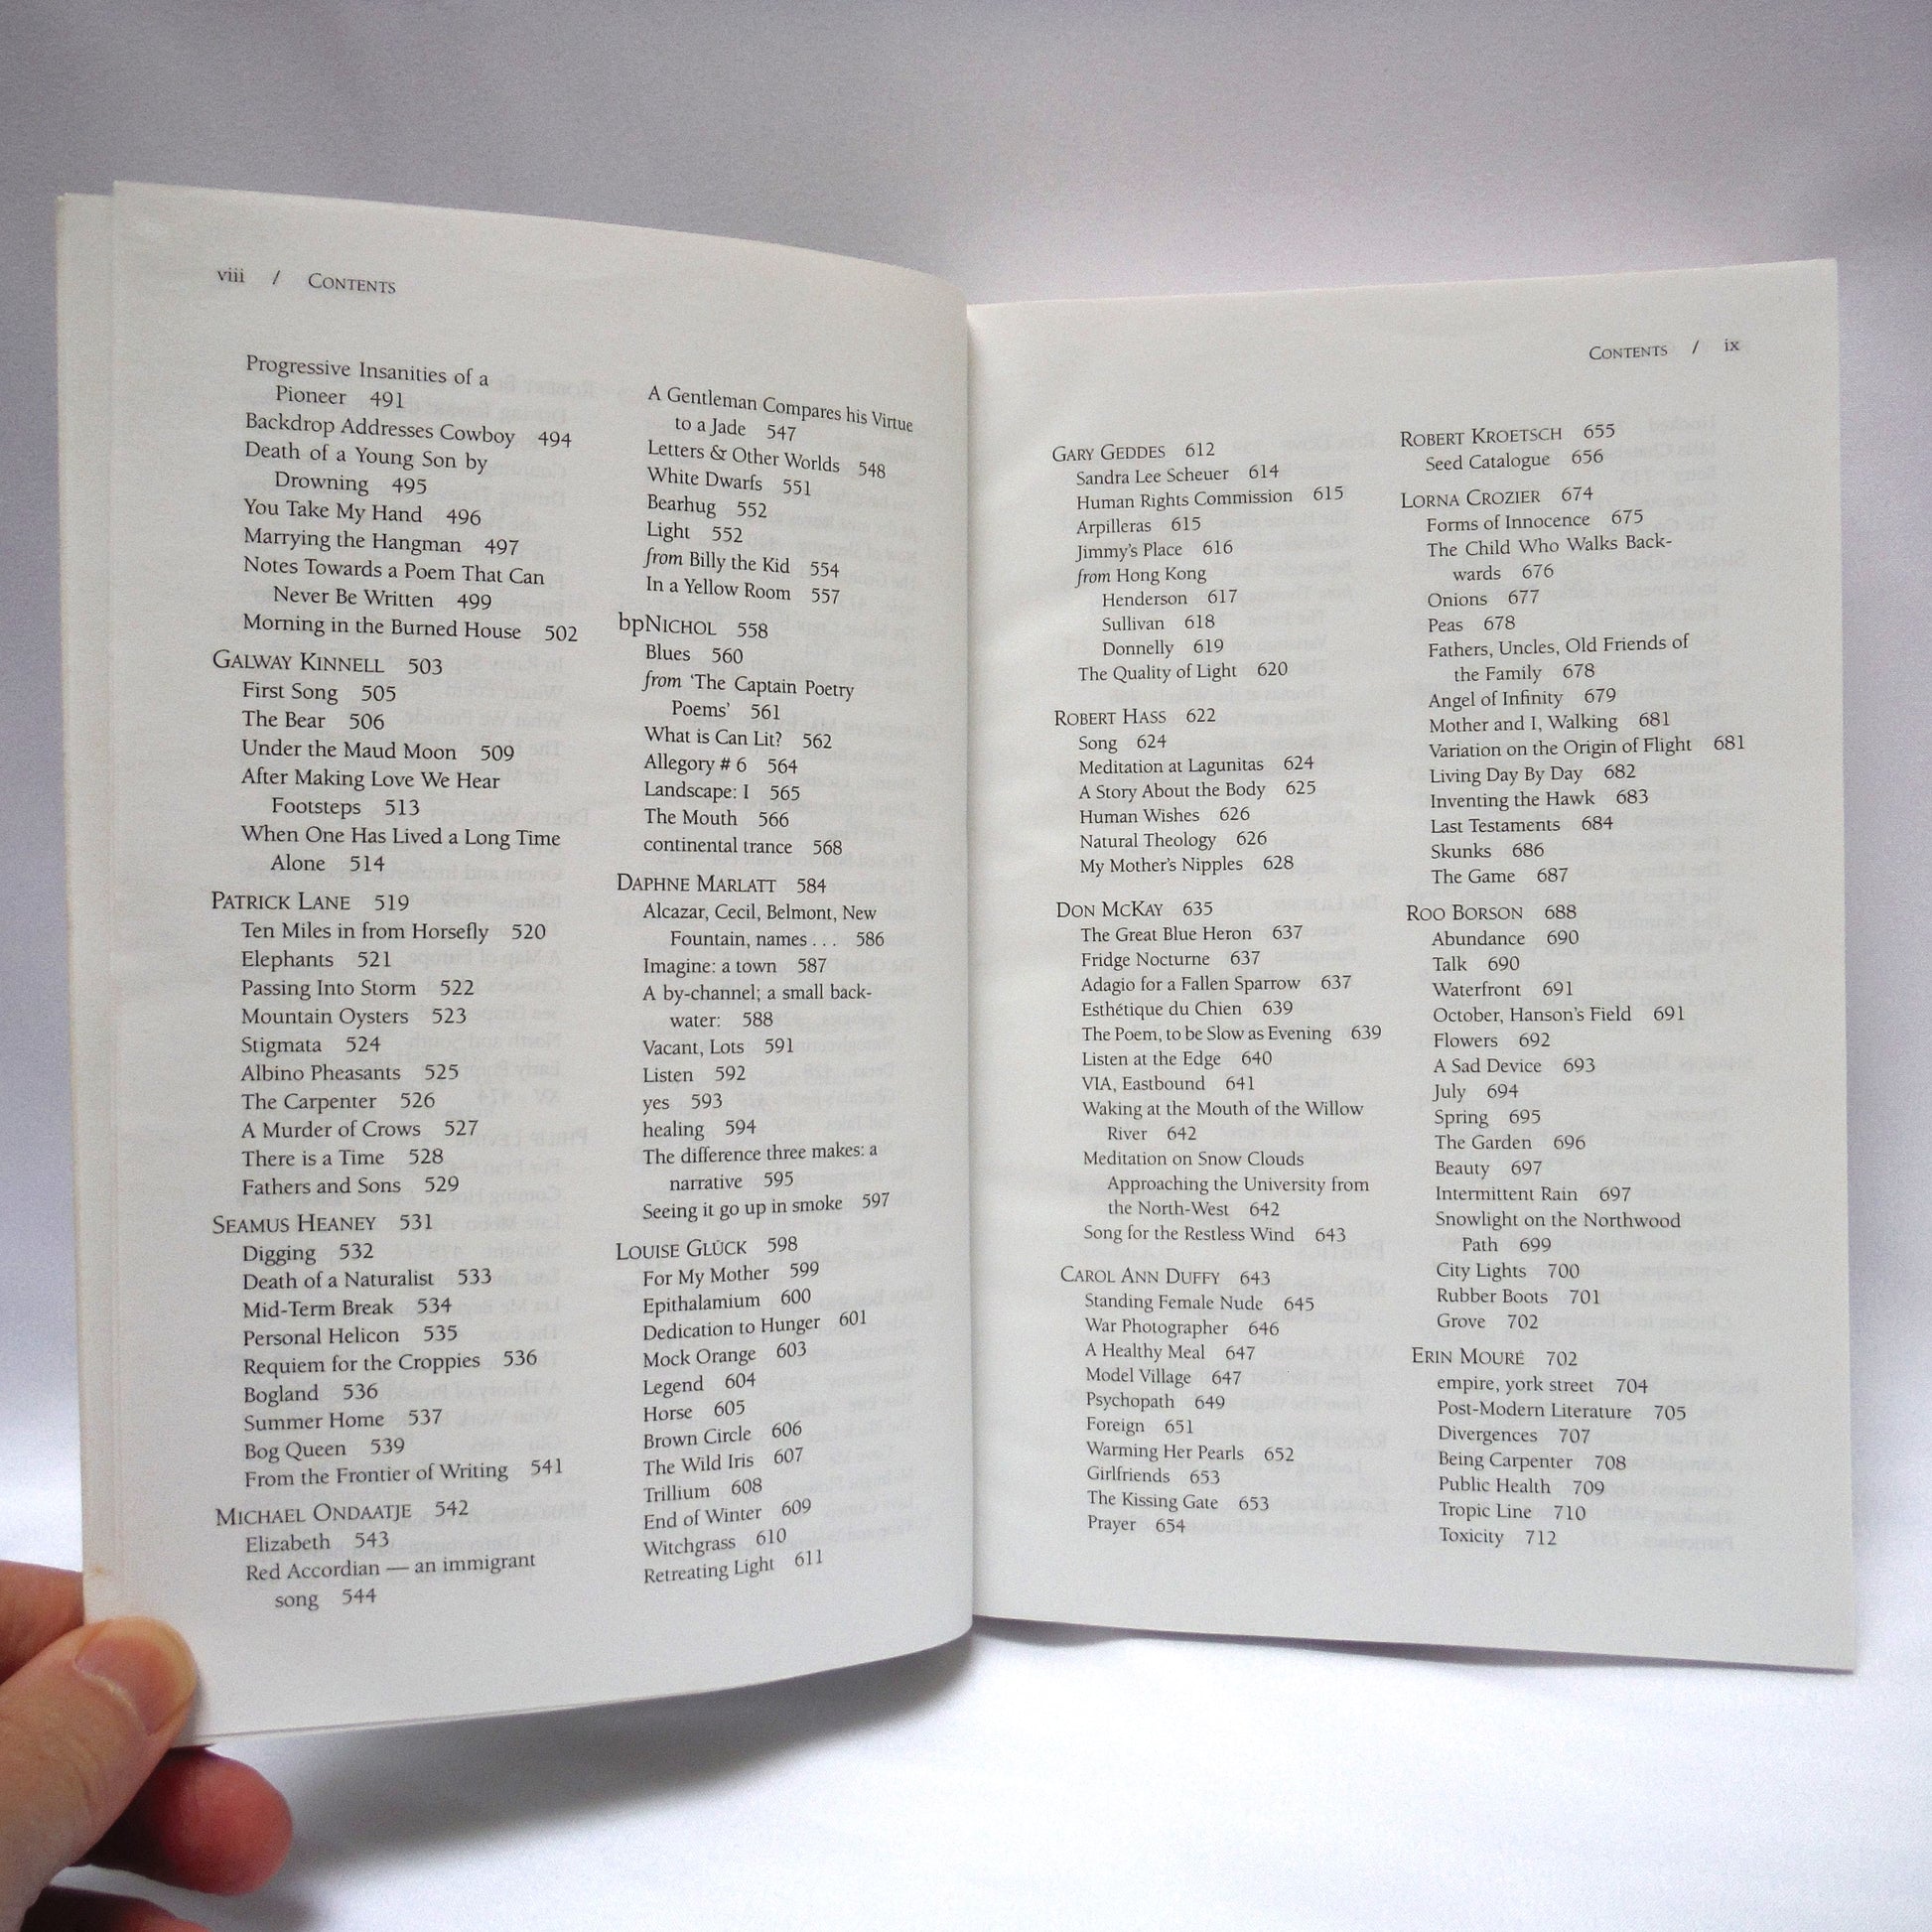 viii / CONTENTS
Progressive Insanities of a
Pioneer 491
Backdrop Addresses Cowboy 494
Death of a Young Son by
Drowning 495
You Take My Hand 496
Marrying the Hangman 497
Notes Towards a Poem That Can
Never Be Written 499
Morning in the Burned House 502
GALWAY KINNELL 503
First Song 505
The Bear 506
Under the Maud Moon 509
After Making Love We Hear
Footsteps 513
When One Has Lived a Long Time
Alone 514
PATRICK LANE 519
Ten Miles in from Horsefly 520
Elephants 521
Passing Into Storm 522
Mountain Oysters 523
Stigmata 524
Albino Pheasants 525
The Carpenter 526
A Murder of Crows 527
There is a Time 528
Fathers and Sons 529
SEAMUS HEANEY 531
Digging 532
Death of a Naturalist 533
Mid-Term Break 534
Personal Helicon 535
Requiem for the Croppies 536
Bogland 536
Summer Home 537
Bog Queen 539
From the Frontier of Writing 541
MICHAEL ONDAATJE 542
Elizabeth 543
Red Accordian — an immigrant
song 544
A Gentleman Compares his Virtue
to a Jade 547
Letters & Other Worlds 548
White Dwarfs 551
Bearhug 552
Light 552
from Billy the Kid 554
In a Yellow Room 557
bpNICHOL 558
Blues 560
from 'The Captain Poetry
Poems' 561
What is Can Lit? 562
Allegory # 6 564
Landscape: I 565
The Mouth 566
continental trance 568
DAPHNE MARLATT 584
Alcazar, Cecil, Belmont, New
Fountain, names . . . 586
Imagine: a town 587
A by-channel; a small back-
water: 588
Vacant, Lots 591
Listen 592
yes 593
healing 594
The difference three makes: a
narrative 595
Seeing it go up in smoke 597
LOUISE GLÜCK 598
For My Mother 599
Epithalamium 600
Dedication to Hunger 601
Mock Orange 603
Legend 604
Horse 605
Brown Circle 606
The Wild Iris 607
Trillium 608
End of Winter 609
Witchgrass 610
Retreating Light 611
CONTENTS / ix
GARY GEDDES 612
Sandra Lee Scheuer 614
Human Rights Commission 615
Arpilleras 615
Jimmy's Place 616
from Hong Kong
Henderson 617
Sullivan 618
Donnelly 619
The Quality of Light 620
ROBERT HASS 622
Song 624
Meditation at Lagunitas 624
A Story About the Body 625
Human Wishes 626
Natural Theology 626
My Mother's Nipples 628
DON MCKAY 635
The Great Blue Heron 637
Fridge Nocturne 637
Adagio for a Fallen Sparrow 637
Esthétique du Chien 639
The Poem, to be Slow as Evening 639
Listen at the Edge 640
VIA, Eastbound 641
Waking at the Mouth of the Willow
River 642
Meditation on Snow Clouds
Approaching the University from
the North-West 642
Song for the Restless Wind 643
CAROL ANN DUFFY 643
Standing Female Nude 645
War Photographer 646
A Healthy Meal 647
Model Village 647
Psychopath 649
Foreign 651
Warming Her Pearls 652
Girlfriends 653
The Kissing Gate 653
Prayer 654
ROBERT KROETSCH 655
Seed Catalogue 656
LORNA CROZIER 674
Forms of Innocence 675
The Child Who Walks Back-
wards 676
Onions 677
Peas 678
Fathers, Uncles, Old Friends of
the Family 678
Angel of Infinity 679
Mother and I, Walking 681
Variation on the Origin of Flight 681
Living Day By Day 682
Inventing the Hawk 683
Last Testaments 684
Skunks 686
The Game 687
ROO BORSON 688
Abundance 690
Talk 690
Waterfront 691
October, Hanson's Field 691
Flowers 692
A Sad Device 693
July 694
Spring 695
The Garden 696
Beauty 697
Intermittent Rain 697
Snowlight on the Northwood
Path 699
City Lights 700
Rubber Boots 701
Grove 702
ERIN MOURÉ 702
empire, york street 704
Post-Modern Literature 705
Divergences 707
Being Carpenter 708
Public Health 709
Tropic Line 710
Toxicity 712